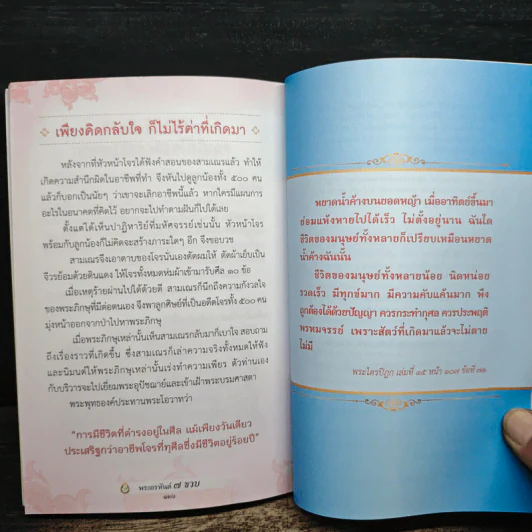 เพียงคิดกลับใจ ก็ไม่ไร้ค่าที่เกิดมา
หลังจากที่หัวหน้าโจรได้ฟังคำสอนของสามเณรแล้ว ทำให้
เกิดความสำนึกผิดในอาชีพที่ทำ จึงหันไปดูลูกน้องทั้ง ๕๐๐ คน
แล้วก็บอกเป็นนัยๆ ว่าเขาจะเลิกอาชีพนี้แล้ว หากใครมีแผนการ
อะไรในอนาคตที่คิดไว้ อยากจะไปทำตามฝันก็ไปได้เลย
ตั้งแต่ได้เห็นปาฏิหาริย์ที่มหัศจรรย์เช่นนั้น หัวหน้าโจร
พร้อมกับลูกน้องก็ไม่คิดจะสร้างภาระใดๆ อีก จึงขอบวช
สามเณรจึงเอาดาบของโจรนั่นเองตัดผมให้ ตัดผ้าเย็บเป็น
จีวรย้อมด้วยดินแดง ให้โจรทั้งหมดห่มผ้าเข้ามารับศีล ๑๐ ข้อ
เมื่อเหตุร้ายผ่านไปได้ด้วยดี สามเณรก็นึกถึงความกังวลใจ
ของพระภิกษุที่มีต่อตนเอง จึงพาลูกศิษย์ที่เป็นอดีตโจรทั้ง ๕๐๐ คน
มุ่งหน้าออกจากป่าไปหาพระภิกษุ
เมื่อพระภิกษุเหล่านั้นเห็นสามเณรกลับมาก็เบาใจ สอบถาม
ถึงเรื่องราวที่เกิดขึ้น ซึ่งสามเณรก็เล่าความจริงทั้งหมดให้ฟัง
และนิมนต์ให้พระภิกษุเหล่านั้นเร่งทำความเพียร ตัวท่านเอง
กับบริวารจะไปเยี่ยมพระอุปัชฌาย์และเข้าเฝ้าพระบรมศาสดา
พระพุทธองค์ประทานพระโอวาทว่า
"การมีชีวิตที่ดำรงอยู่ในศีล แม้เพียงวันเดียว
ประเสริฐกว่าอาชีพโจรที่ทุศีลซึ่งมีชีวิตอยู่ร้อยปี"
พระอรหันต์ ๗ ขวบ
หยาดน้ำค้างบนยอดหญ้า เมื่ออาทิตย์ขึ้นมา
ย่อมแห้งหายไปได้เร็ว ไม่ตั้งอยู่นาน ฉันใด
ชีวิตของมนุษย์ทั้งหลายก็เปรียบเหมือนหยาด
น้ำค้างฉันนั้น
ชีวิตของมนุษย์ทั้งหลายน้อย นิดหน่อย
รวดเร็ว มีทุกข์มาก มีความคับแค้นมาก พึง
ถูกต้องได้ด้วยปัญญา ควรกระทำกุศล ควรประพฤติ
พรหมจรรย์ เพราะสัตว์ที่เกิดมาแล้วจะไม่ตาย
ไม่มี
พระไตรปิฎก เล่มที่ ๑๕ หน้า ๑๐๗ ข้อที่ ๗๑